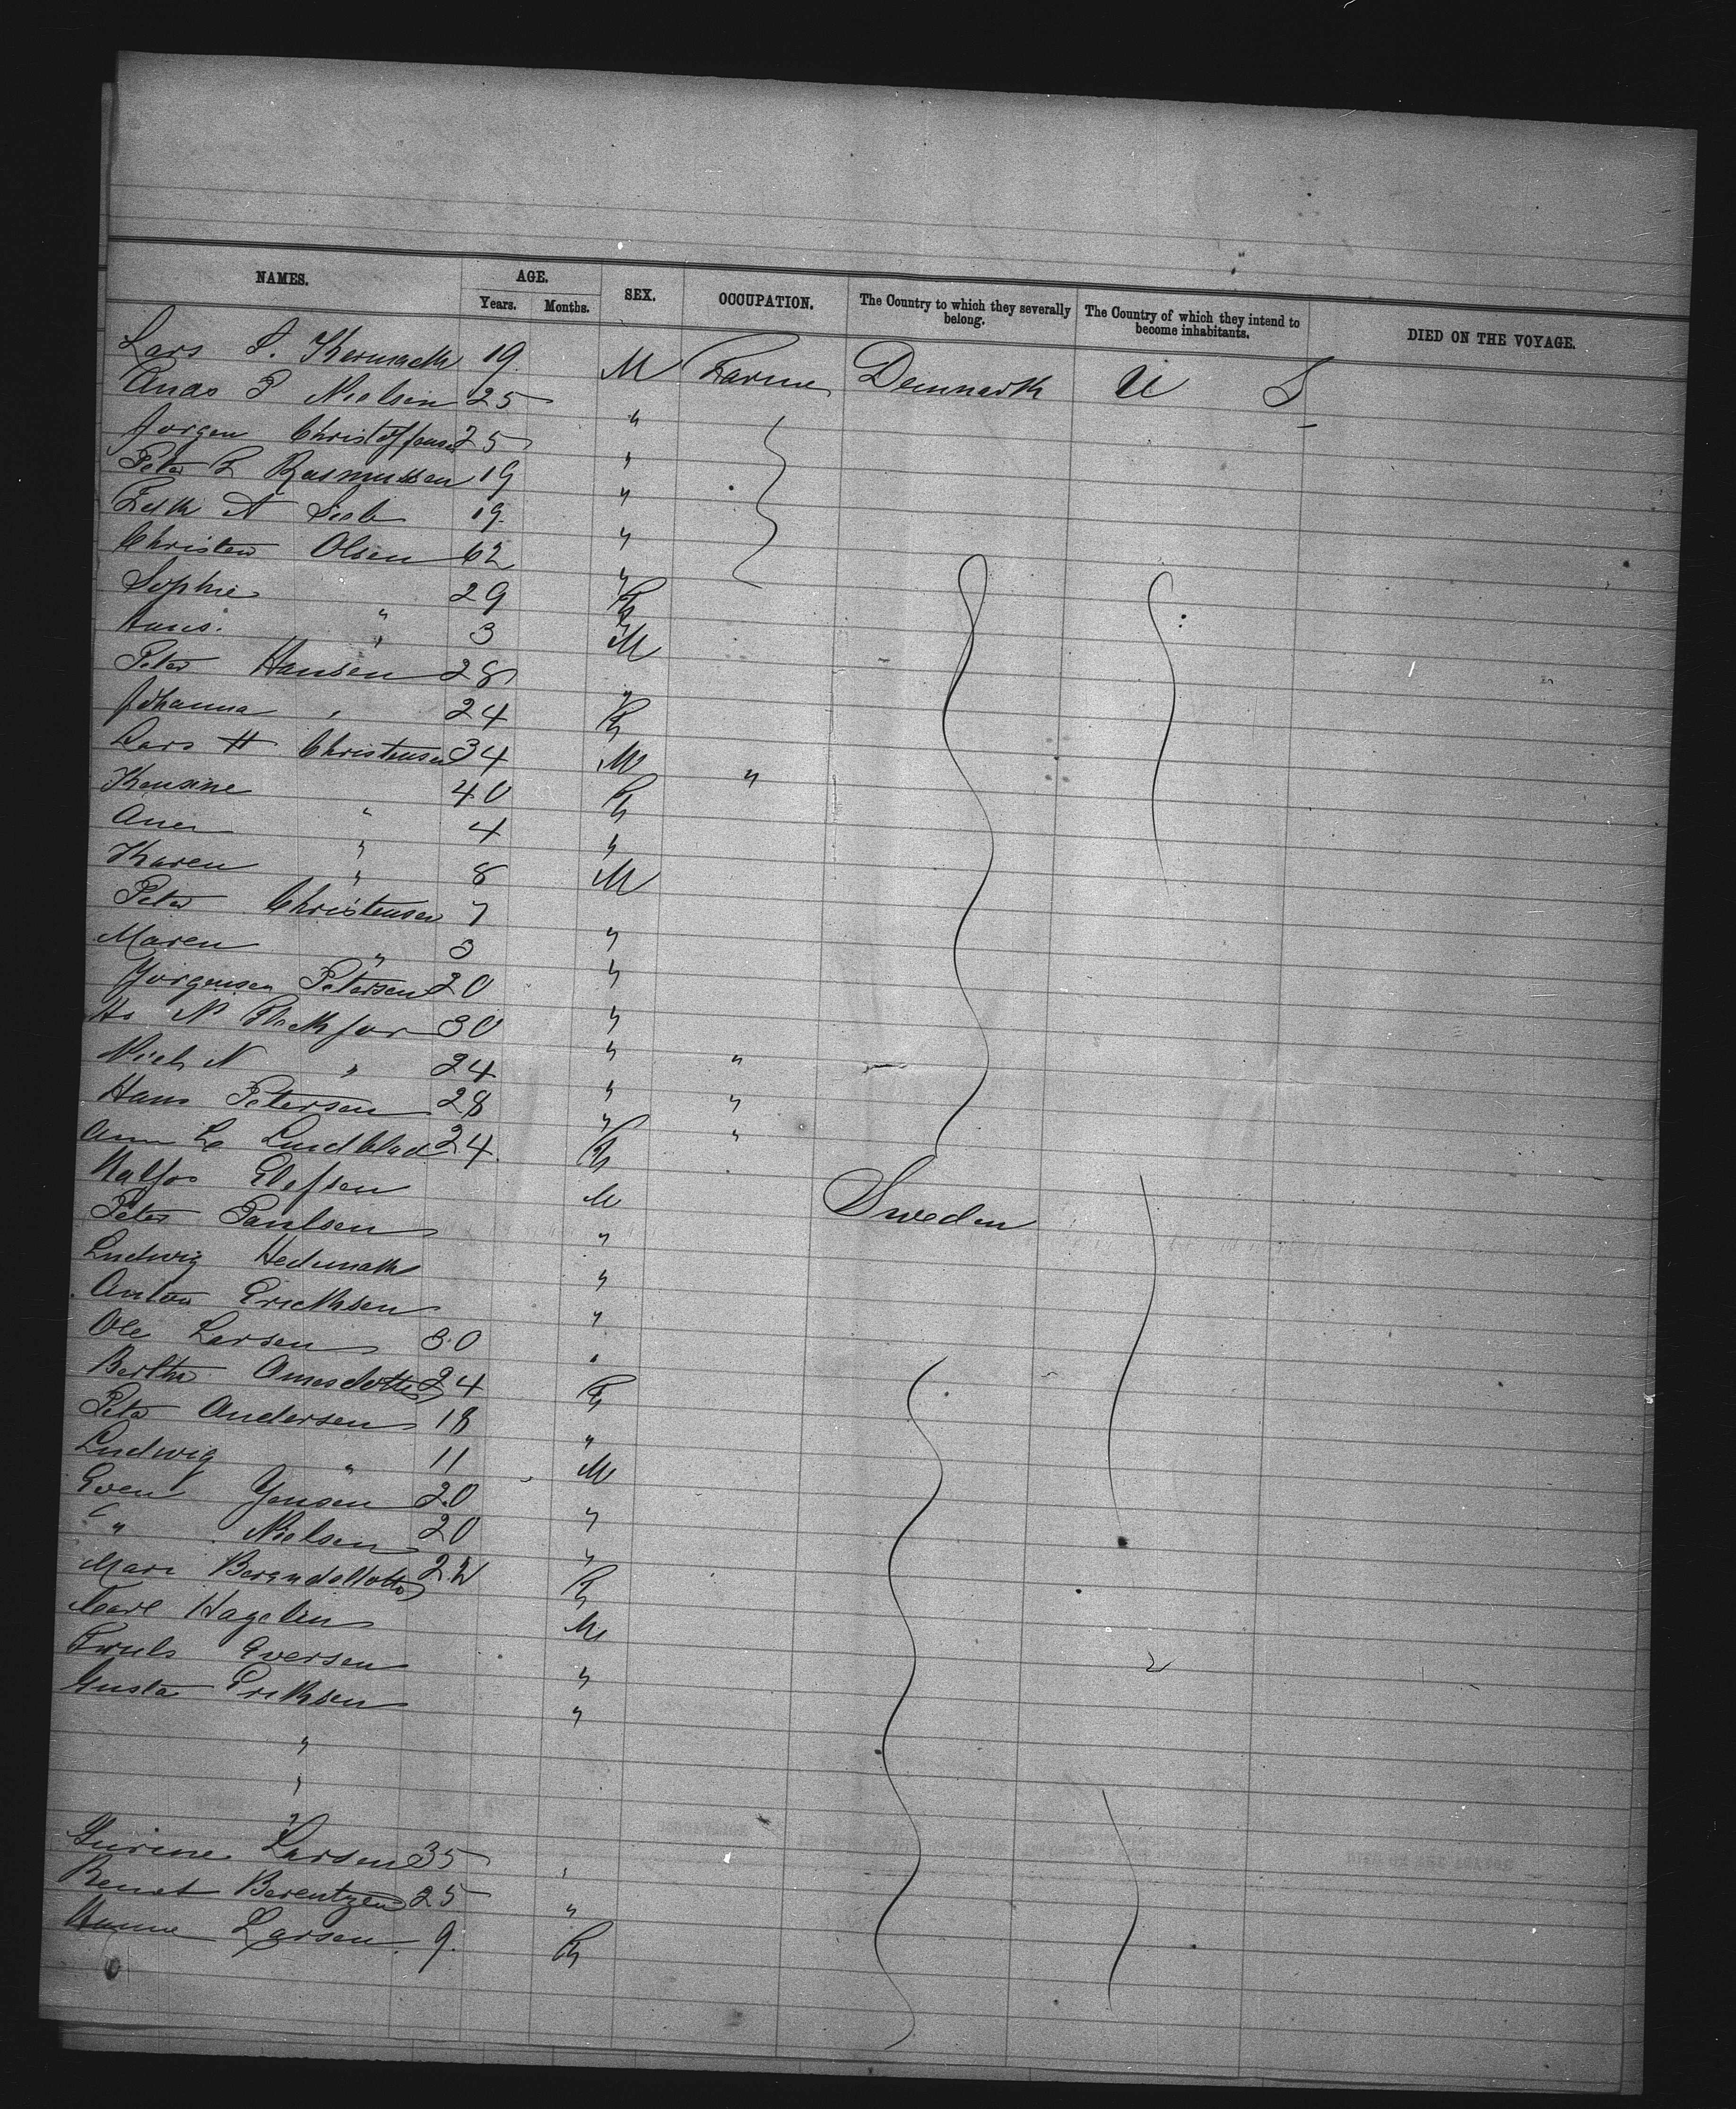 NAMES. AGE. SEX. OCCUPATION. The Country to which they severally belong. The Country of which they intend to become inhabitants. DIED ON THE VOYAGE.
Years. Months.
Lars 19 M Farmer Denmark U S
P Nielsen 25 "
Jorgen Christoffensen 25 "
Peter L Rasmussen 19 "
A 19 "
Christen Olsen 62 "
Sophie " 29 F
Hans " 3 M
Peter Hansen 28 "
Johanna " 24 F
Lars H Christensen 34 M "
" 40 F
" 4 "
Karen " 8 M
Peter Christensen 7 "
Maren " 3 "
Jorgensen Petersen 20 "
N 30 " "
N " 24 " "
Hans Petersen 28 " "
Lindblad 24 F
M Sweden
Peter Paulsen "
Ludwig "
Anton Ericksen "
Ole Larsen 30 "
Bertha 24 F
Peter Andersen 18 "
Ludwig " 11 M
Even Jensen 20 "
" Nielsen 20 "
Mari 22 F
Carl Hagelin M
Eversen "
Gusta Eriksen "
"
"
"
Larsen 35 "
Berentzen 25 "
Hanne Larsen 9 F